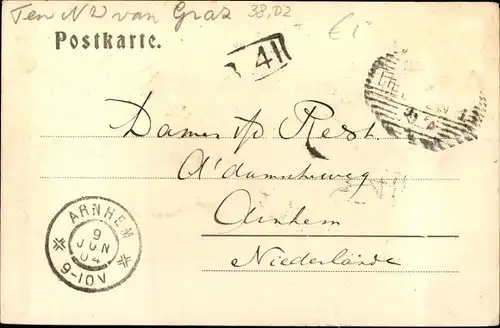 Ten NW van Graz 38,02
€ 1
Postkarte.
Dames
A'damscheweg
Arnhem
Niederlände
ARNHEM
9
JUN
04
9-10V